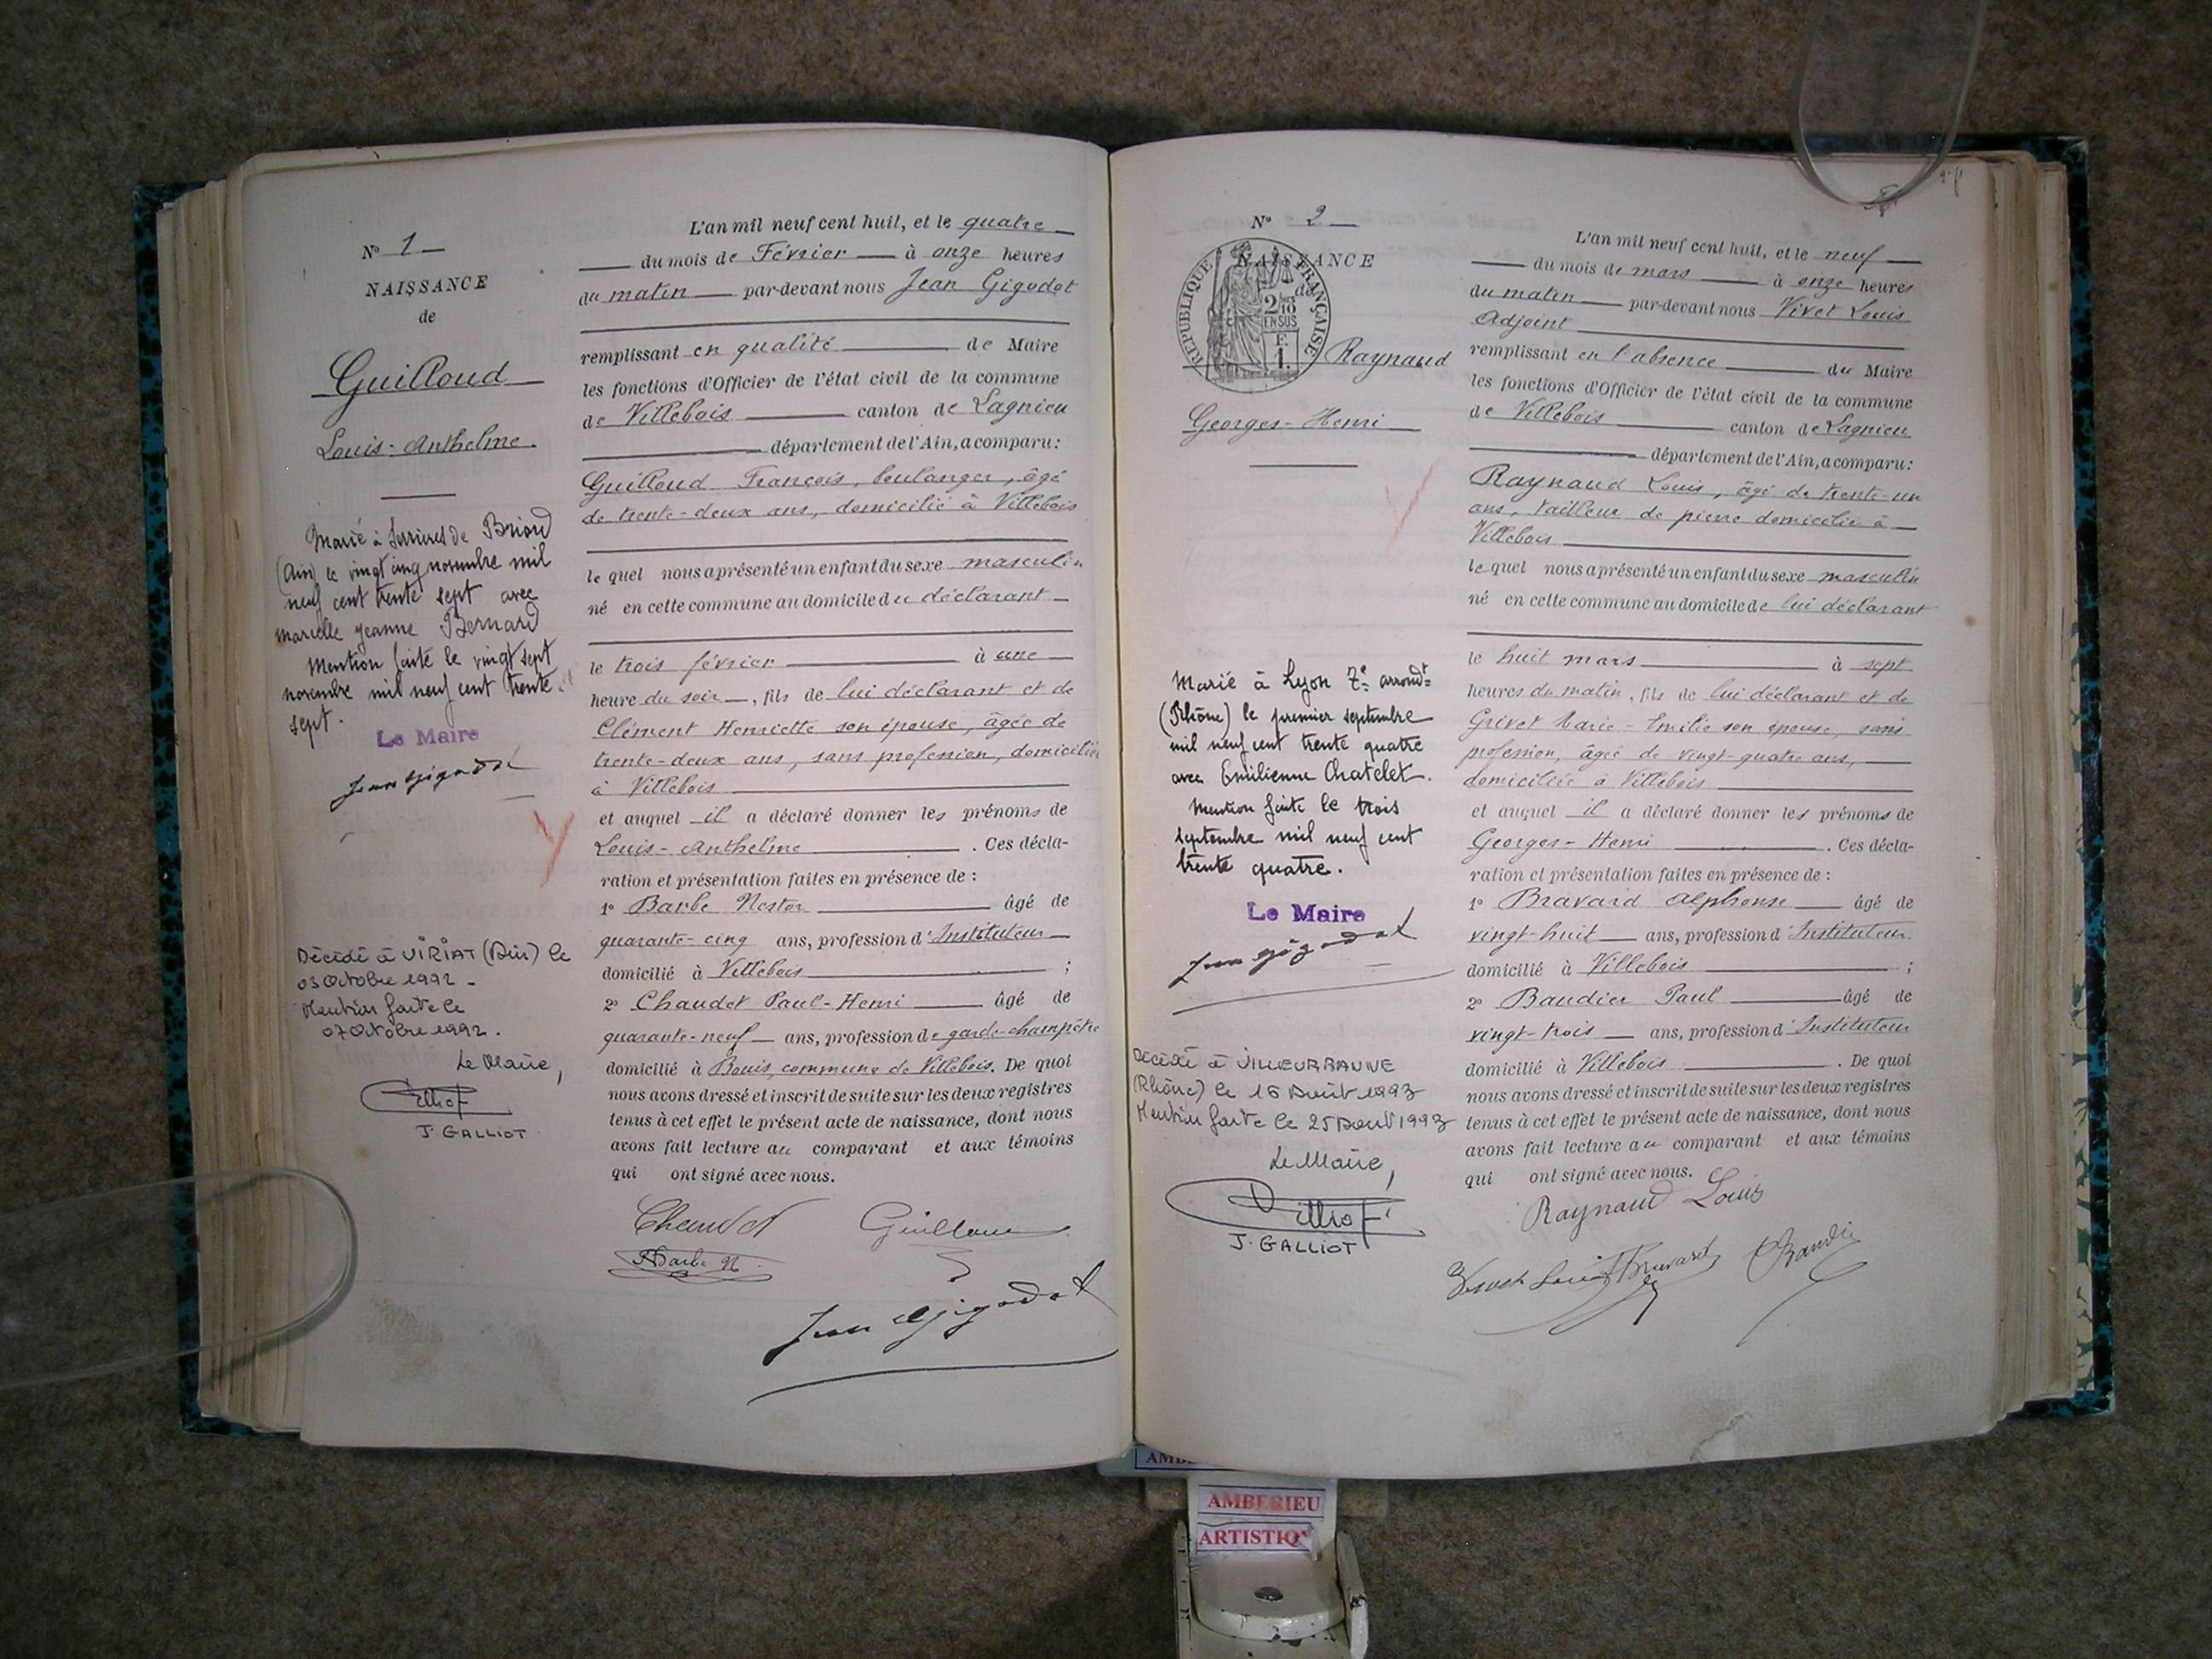 N° 1
NAISSANCE
de
Guilloud
Louis-Anthelme.
Marié à Serrières de Briord
(Ain) le vingt cinq novembre mil
neuf cent trente sept avec
Marcelle Jeanne Bernard
Mention faite le vingt sept
novembre mil neuf cent trente
sept.
Le Maire
Jean Gigodot
Décédé à VIRIAT (Ain) le
03 Octobre 1992 -
Mention faite le
07 Octobre 1992.
Le Maire,
J. GALLIOT
L'an mil neuf cent huit, et le quatre
du mois de Février à onze heures
du matin par-devant nous Jean Gigodot
remplissant en qualité de Maire
les fonctions d'Officier de l'état civil de la commune
de Villebois canton de Lagnieu
département de l'Ain, a comparu:
Guilloud François, boulanger, âgé
de trente-deux ans, domicilié à Villebois
le quel nous a présenté un enfant du sexe masculin
né en cette commune au domicile du déclarant
le trois février à une
heure du soir, fils de lui déclarant et de
Clément Henriette son épouse, âgée de
trente-deux ans, sans profession, domiciliée
à Villebois
et auquel il a déclaré donner les prénoms de
Louis-Anthelme. Ces décla-
ration et présentation faites en présence de :
1° Barbe Nestor âgé de
quarante-cinq ans, profession d'Instituteur
domicilié à Villebois ;
2° Chaudet Paul-Henri âgé de
quarante-neuf ans, profession de garde-champêtre
domicilié à Bouis, commune de Villebois. De quoi
nous avons dressé et inscrit de suite sur les deux registres
tenus à cet effet le présent acte de naissance, dont nous
avons fait lecture au comparant et aux témoins
qui ont signé avec nous.
Chaudet Guilloud
Barbe N.
Jean Gigodot
N° 2
NAISSANCE
de
RÉPUBLIQUE FRANÇAISE
2/10
EN SUS
F.
1.
Raynaud
Georges-Henri
Marié à Lyon 7e arrondt
(Rhône) le premier septembre
mil neuf cent trente quatre
avec Emilienne Chatelet.
Mention faite le trois
septembre mil neuf cent
trente quatre.
Le Maire
Jean Gigodot
Décédé à VILLEURBANNE
(Rhône) le 16 Août 1993
Mention faite le 25 Août 1993
Le Maire,
J. GALLIOT
L'an mil neuf cent huit, et le neuf
du mois de mars à onze heures
du matin par-devant nous Vivet Louis
Adjoint
remplissant en l'absence du Maire
les fonctions d'Officier de l'état civil de la commune
de Villebois canton de Lagnieu
département de l'Ain, a comparu:
Raynaud Louis, âgé de trente-un
ans, tailleur de pierre domicilié à
Villebois
le quel nous a présenté un enfant du sexe masculin
né en cette commune au domicile de lui déclarant
le huit mars à sept
heures du matin, fils de lui déclarant et de
Grivet Marie-Emilie son épouse, sans
profession, âgée de vingt-quatre ans,
domiciliée à Villebois
et auquel il a déclaré donner les prénoms de
Georges-Henri. Ces décla-
ration et présentation faites en présence de :
1° Bravard Alphonse âgé de
vingt-huit ans, profession d'Instituteur
domicilié à Villebois ;
2° Baudier Paul âgé de
vingt-trois ans, profession d'Instituteur
domicilié à Villebois. De quoi
nous avons dressé et inscrit de suite sur les deux registres
tenus à cet effet le présent acte de naissance, dont nous
avons fait lecture au comparant et aux témoins
qui ont signé avec nous.
Raynaud Louis
Louis Bravard
AMBERIEU
ARTISTIQ